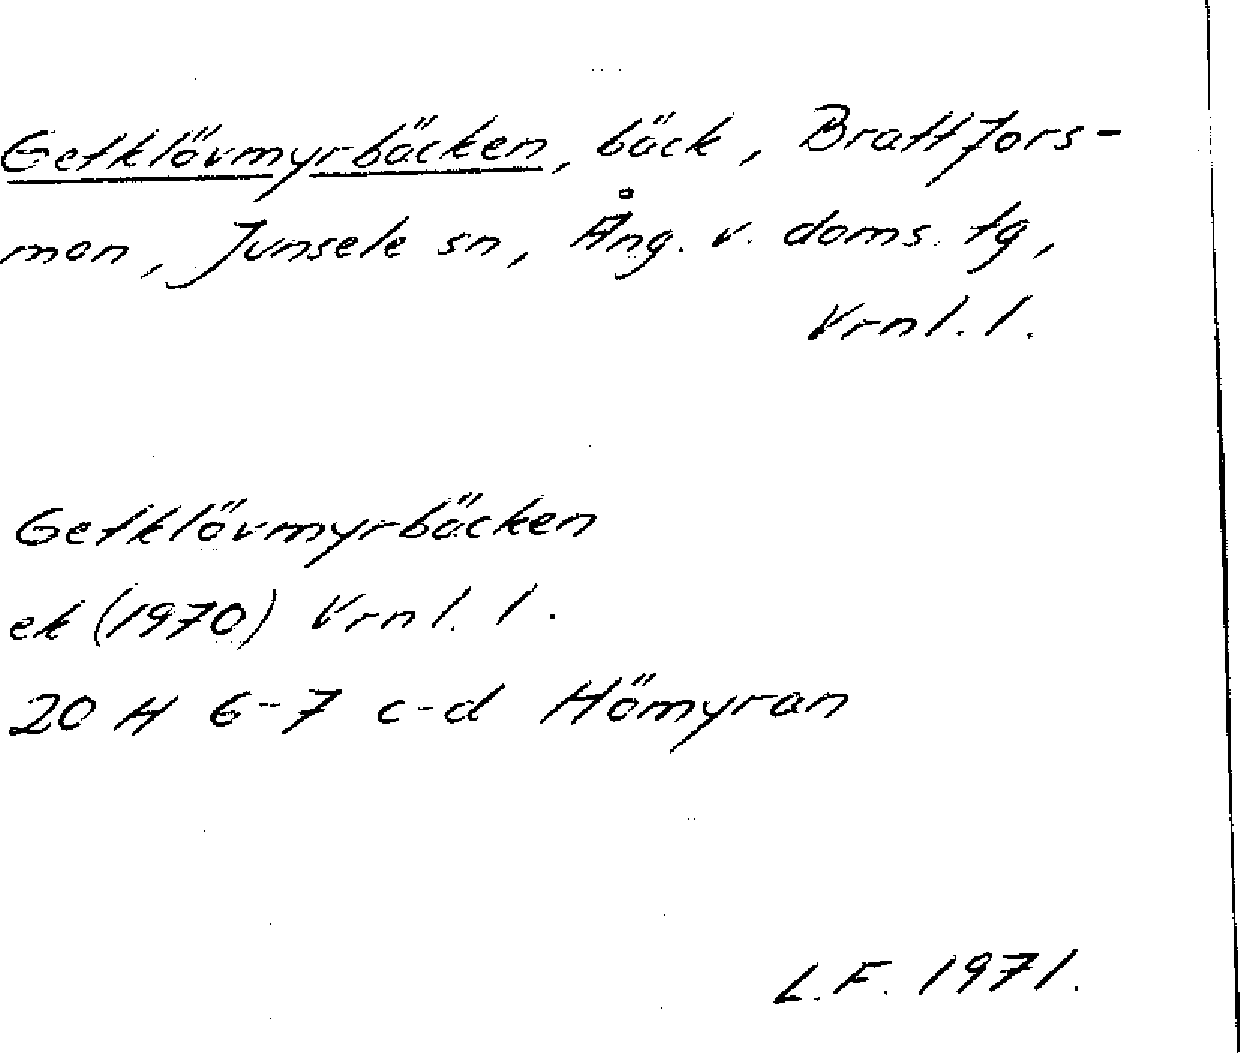 Getklövmyrbäcken, bäck, Brattfors-
mon, Junsele sn, Ång. v. doms. tg,
Vrnl. l.
Getklövmyrbäcken
ek (1970) Vrnl. l.
20 H 6-7 c-d Hömyran
L.F. 1971.